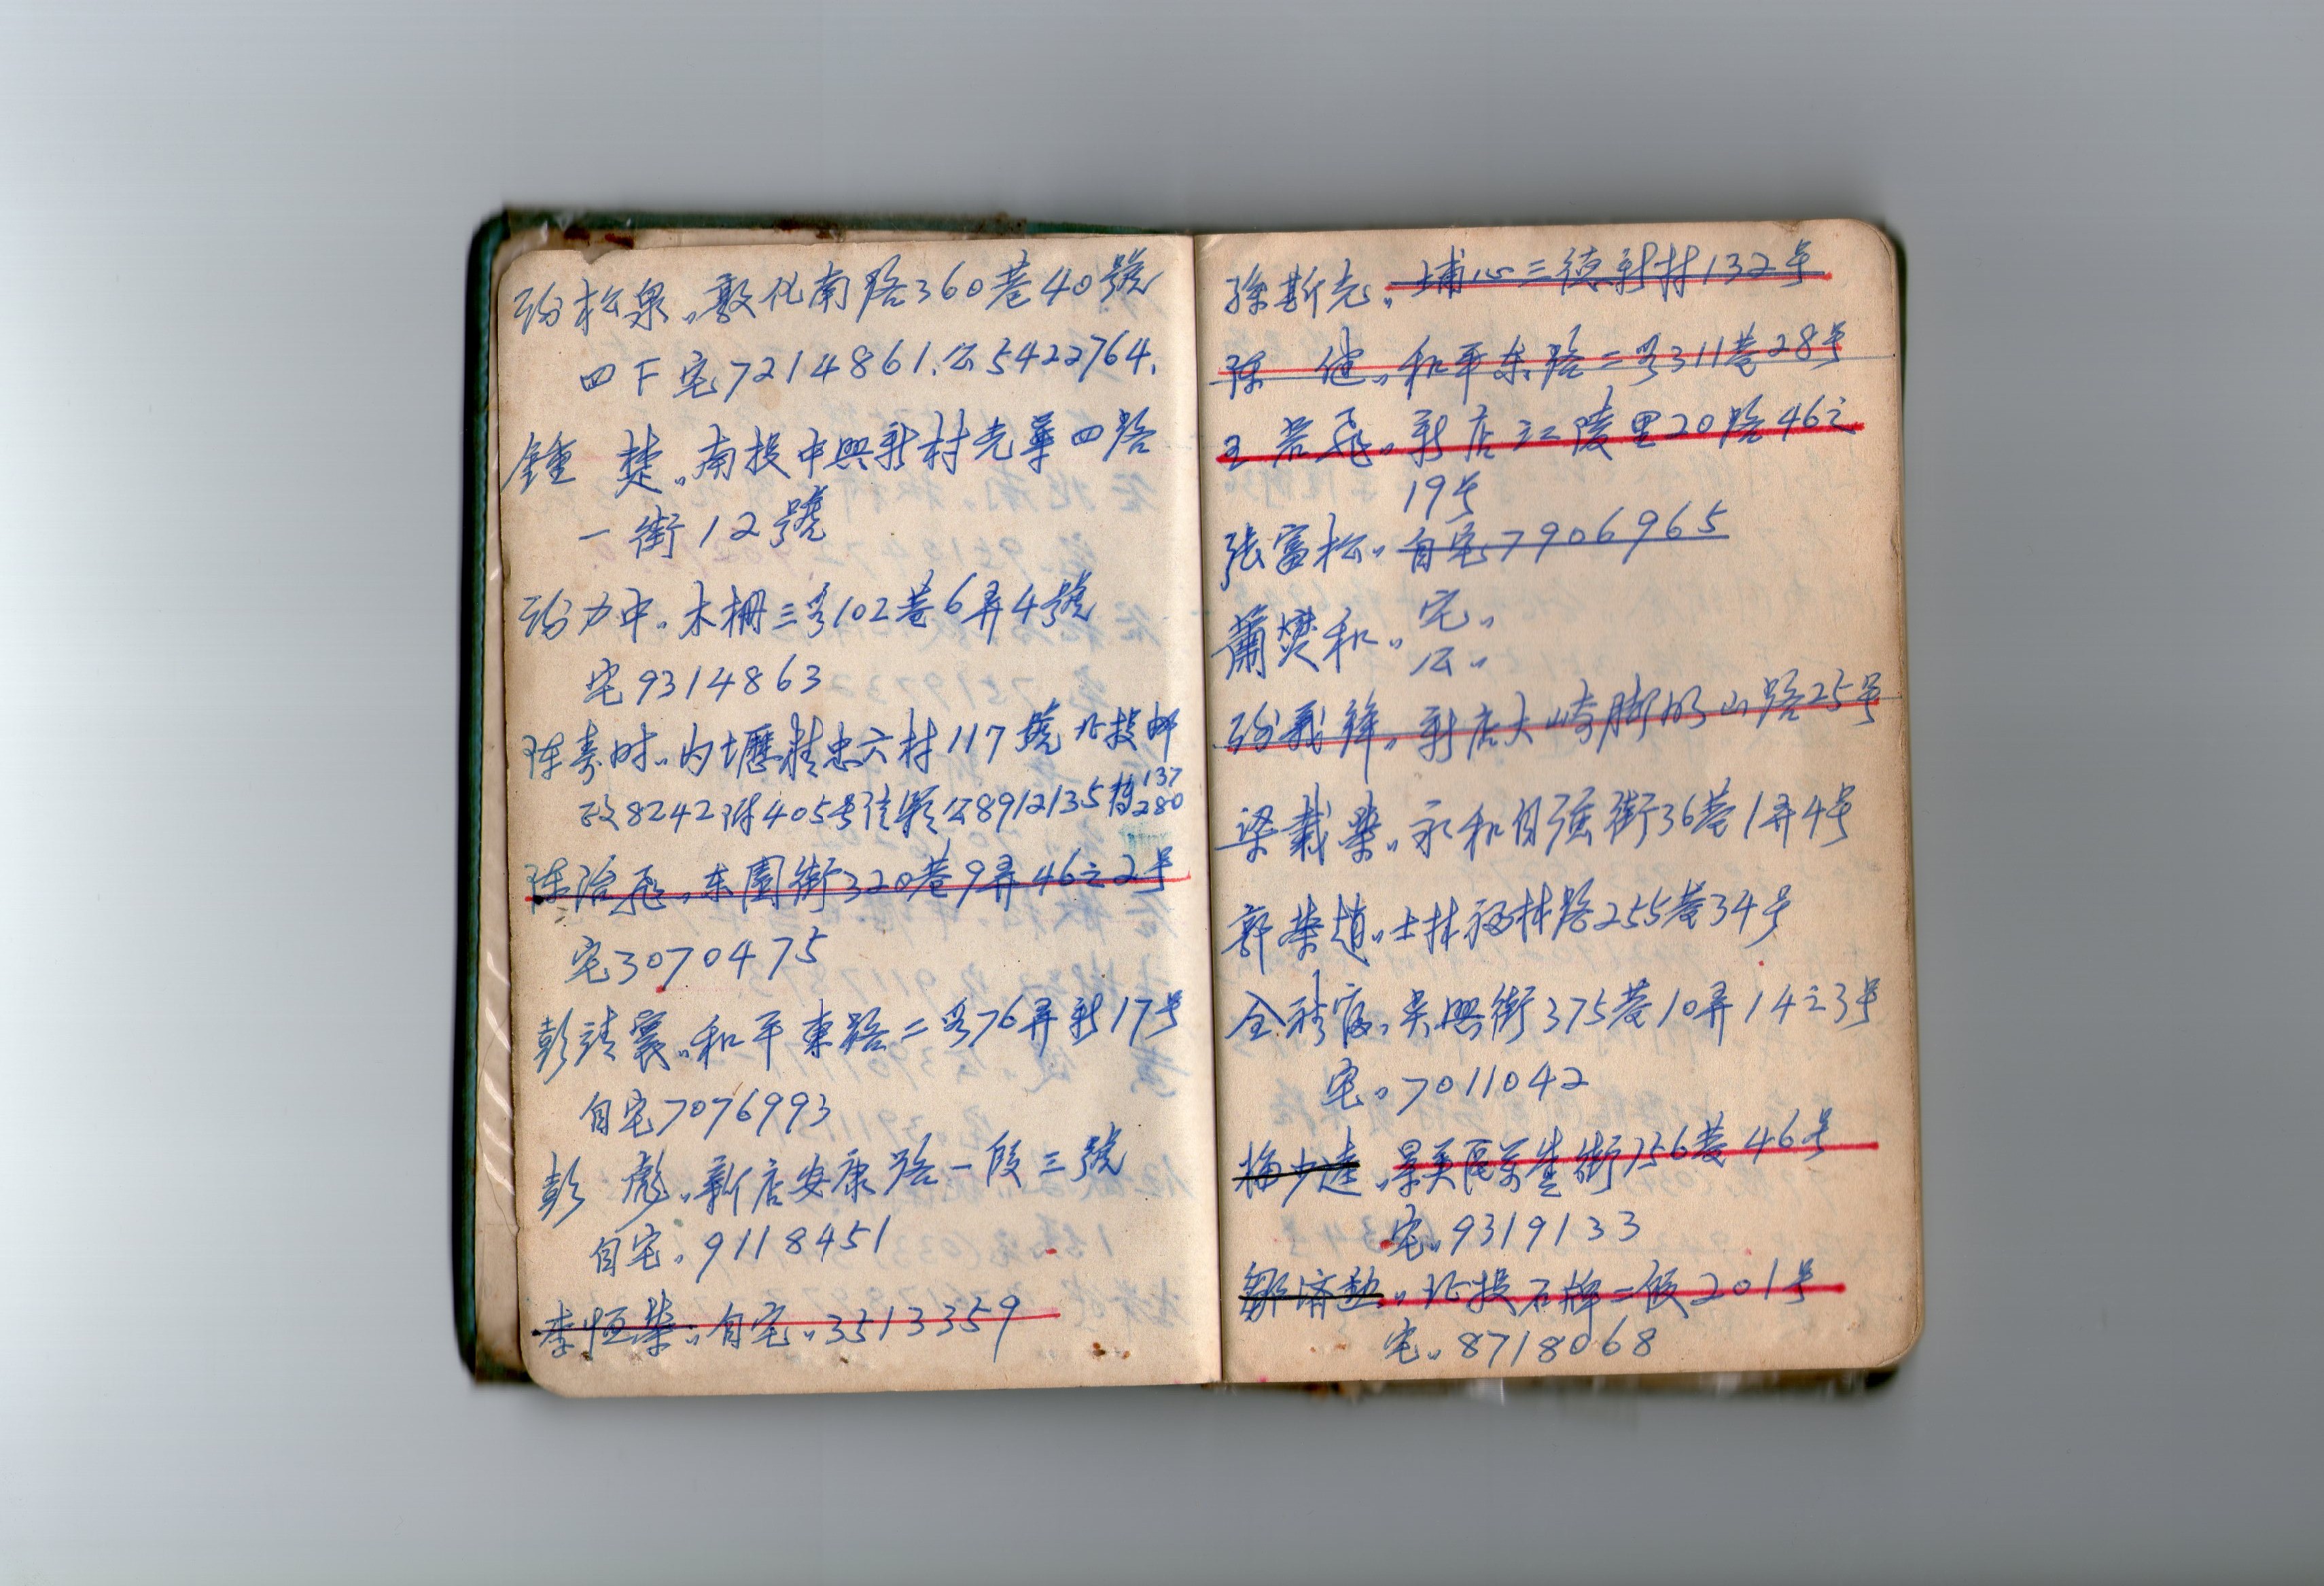 松泉。敦化南路360巷40號
四F宅7214861.公5422764.
鍾 楚。南投中興新村光華四路
一街12號
力中。木柵三段102巷6弄4號
宅9314863
陈壽时。内壢精忠六村117號北投郵
政8242附405号信箱公8912135轉137 280
陈治飛。东園街320巷9弄46之2号
宅3070475
彭靖寰。和平東路二段76弄新17号
自宅7076993
彭 彪。新店安康路一段三號
自宅。9118451
李恒荣。自宅。3513359
徐斯克。埔心三德新村132号
陈 健。和平东路二段311巷28号
王若飛。新店江陵里20路46之
19号
張富松。自宅7906965
蕭 和。宅。
公。
義鋒。新店大崎脚明山路25号
梁載榮。永和自强街36巷1弄4号
郭荣趙。士林福林路255巷34号
全 。吴興街375巷10弄14之3号
宅。7011042
梅少達。景美區萬隆街156巷46号
宅。9319133
鄒濟勳。北投石牌二段201号
宅。8718068